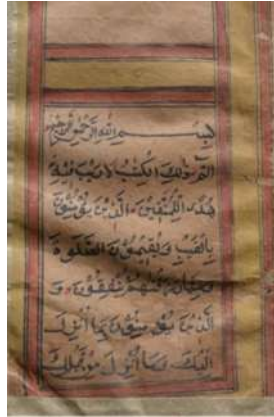 بِسْمِ اللهِ الرَّحْمٰنِ الرَّحِيْمِ
الم ذٰلِكَ الْكِتٰبُ لَا رَيْبَ فِيْهِ
هُدًى لِلْمُتَّقِيْنَ الَّذِيْنَ يُؤْمِنُوْنَ
بِالْغَيْبِ وَيُقِيْمُوْنَ الصَّلٰوةَ
وَمِمَّا رَزَقْنٰهُمْ يُنْفِقُوْنَ وَ
الَّذِيْنَ يُؤْمِنُوْنَ بِمَا اُنْزِلَ
اِلَيْكَ وَمَا اُنْزِلَ مِنْ قَبْلِكَ